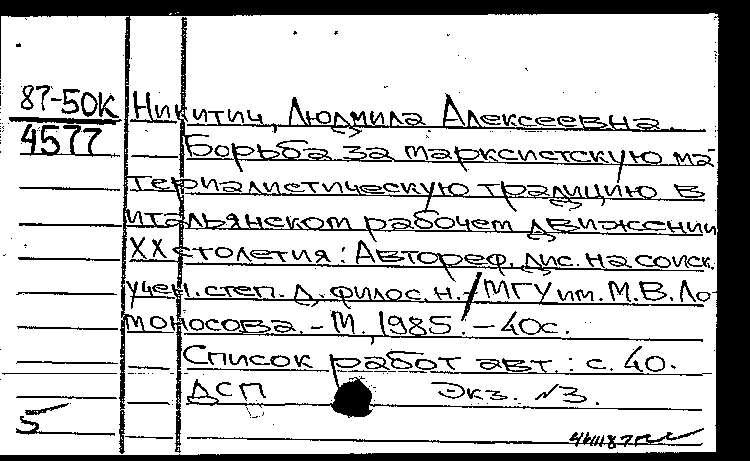 87-50К Никитич, Людмила Алексеевна.
4577 Борьба за марксистскую ма
териалистическую традицию в
итальянском рабочем движении
XX столетия: Автореф. дис. на соиск.
учен. степ. д. филос. н. / МГУ им. М.В. Ло-
моносова. - М., 1985. - 40с.
Список работ авт.: с. 40.
ДСП Экз. №3.
5